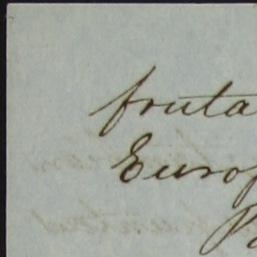 fruta
Europ